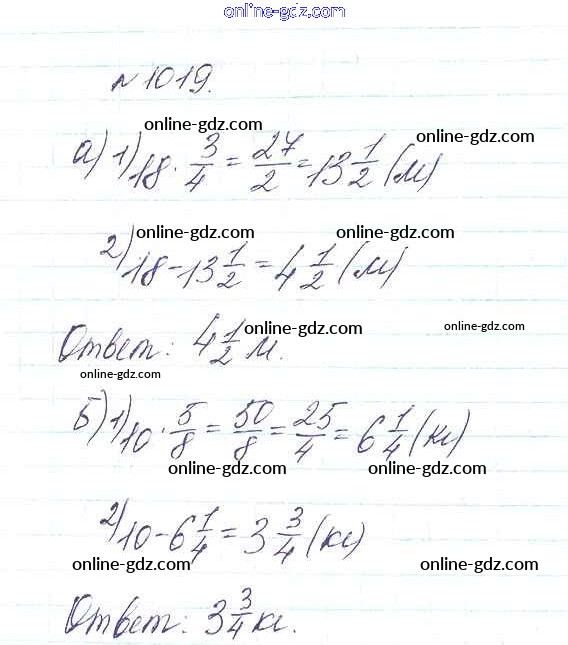 online-gdz.com
№ 1019.
online-gdz.com
online-gdz.com
а) 1) 18 · 3/4 = 27/2 = 13 1/2 (м)
online-gdz.com
online-gdz.com
2) 18 - 13 1/2 = 4 1/2 (м)
online-gdz.com
online-gdz.com
Ответ: 4 1/2 м.
online-gdz.com
Б) 1) 10 · 5/8 = 50/8 = 25/4 = 6 1/4 (кг)
online-gdz.com
online-gdz.com
2) 10 - 6 1/4 = 3 3/4 (кг)
online-gdz.com
online-gdz.com
Ответ: 3 3/4 кг.